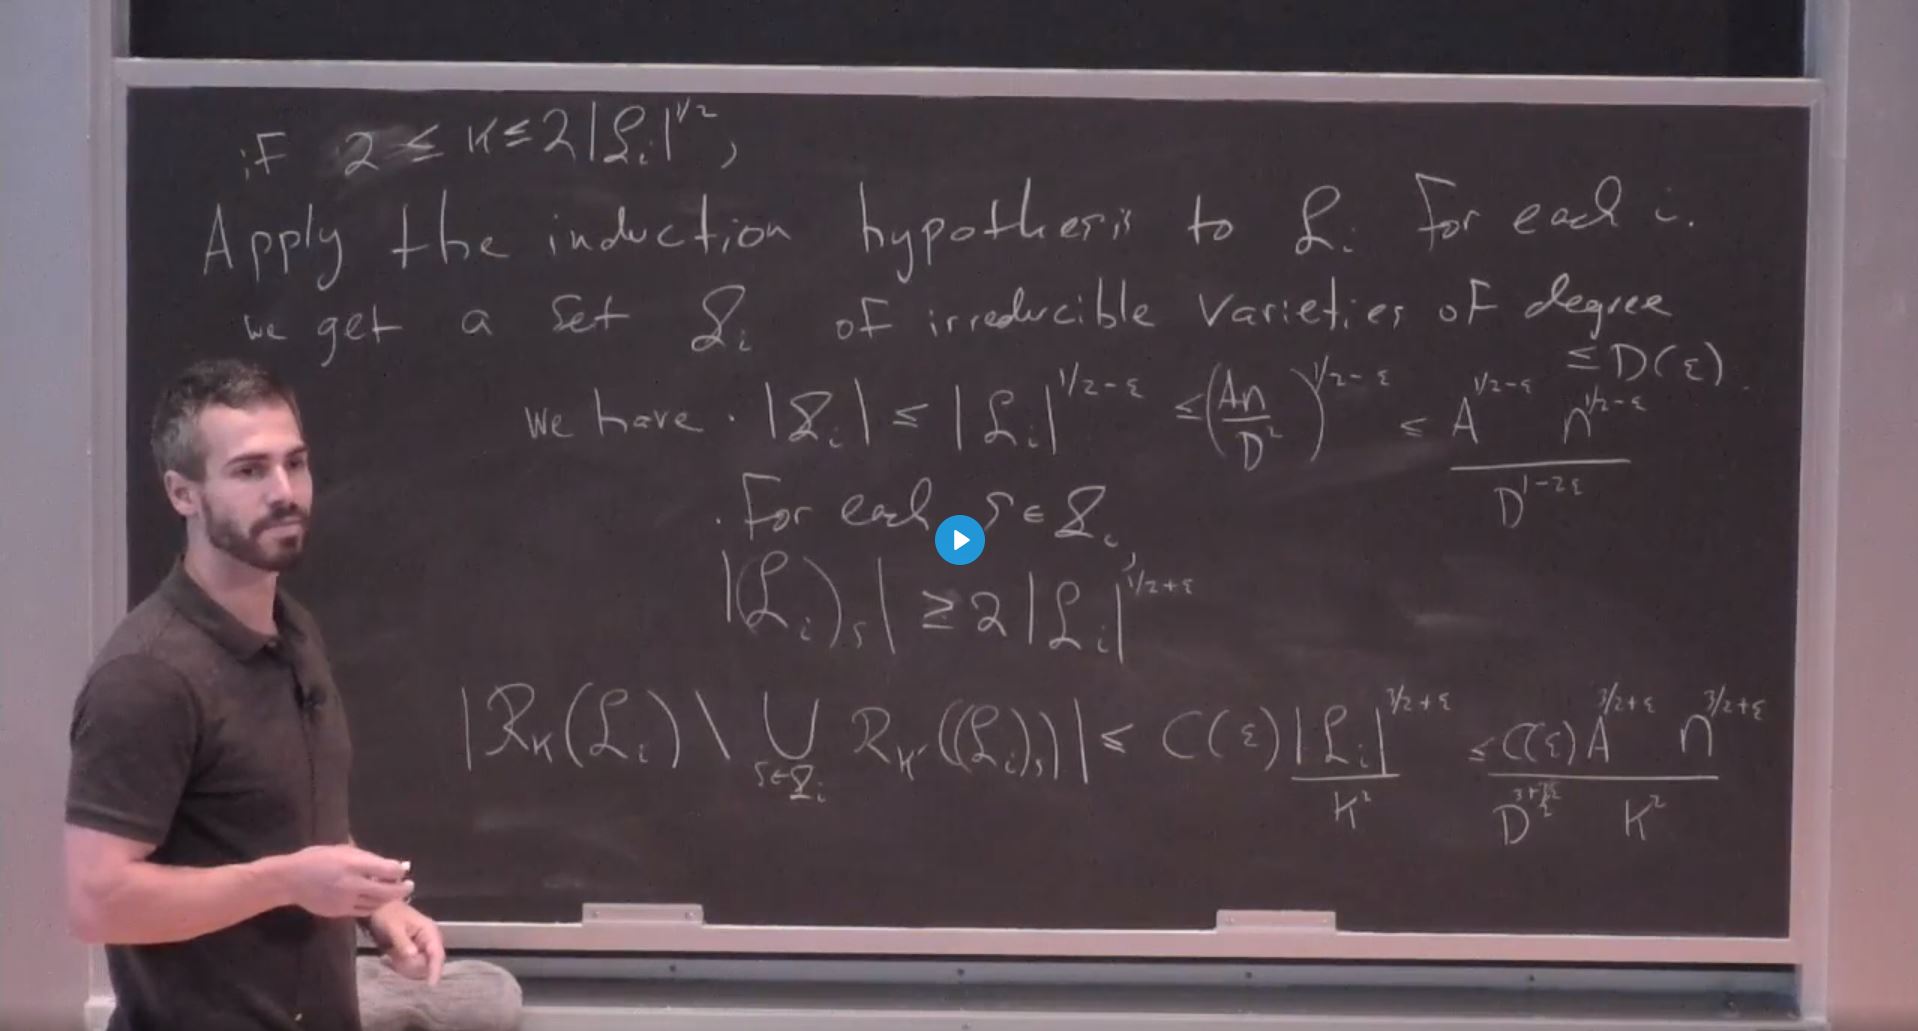 if 2 ≤ K ≤ 2|𝔏_i|^{1/2},
Apply the induction hypothesis to 𝔏_i for each i.
we get a set 𝒮_i of irreducible varieties of degree
≤ D(ε).
we have · |𝒮_i| ≤ |𝔏_i|^{1/2-ε} ≤ (An/D²)^{1/2-ε} ≤ A^{1/2-ε} n^{1/2-ε} / D^{1-2ε}
· For each S ∈ 𝒮_i,
|(𝔏_i)_S| ≥ 2|𝔏_i|^{1/2+ε}
|R_K(𝔏_i) \ ⋃_{S∈𝒮_i} R_{K'}((𝔏_i)_S)| ≤ C(ε)|𝔏_i|^{3/2+ε} / K² ≤ C(ε)A^{3/2+ε} n^{3/2+ε} / D^{3+2ε} K²